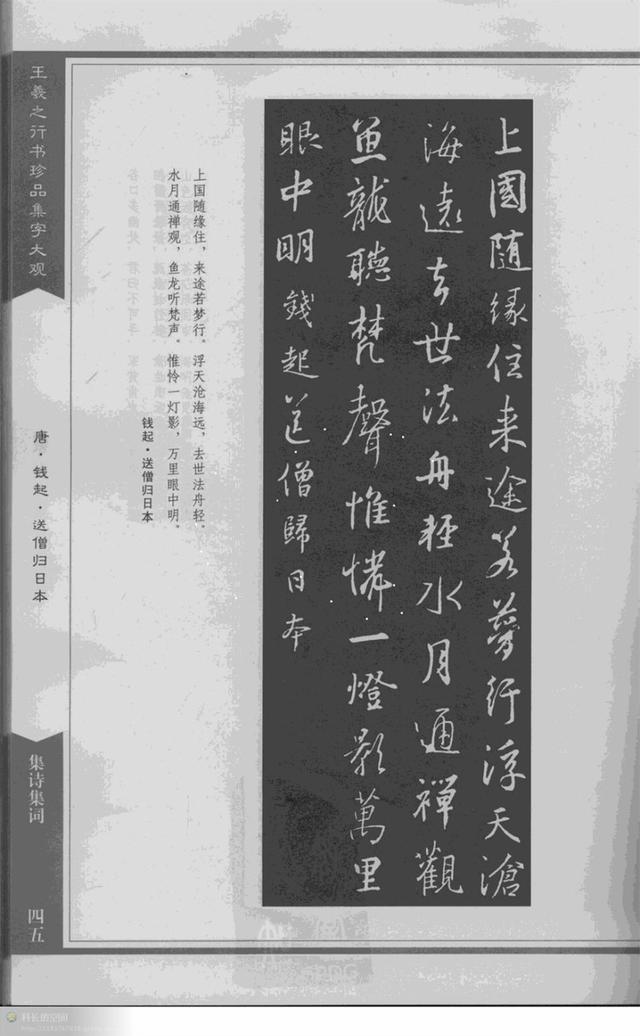 上國随緣住来途若夢行浮天滄
海遠去世法舟輕水月通禪觀
魚龍聽梵聲惟憐一燈影萬里
眼中明錢起送僧歸日本
上国随缘住，来途若梦行。浮天沧海远，去世法舟轻。
水月通禅观，鱼龙听梵声。惟怜一灯影，万里眼中明。
钱起·送僧归日本
王羲之行书珍品集字大观
唐·钱起·送僧归日本
集诗集词
四五
科长的空间